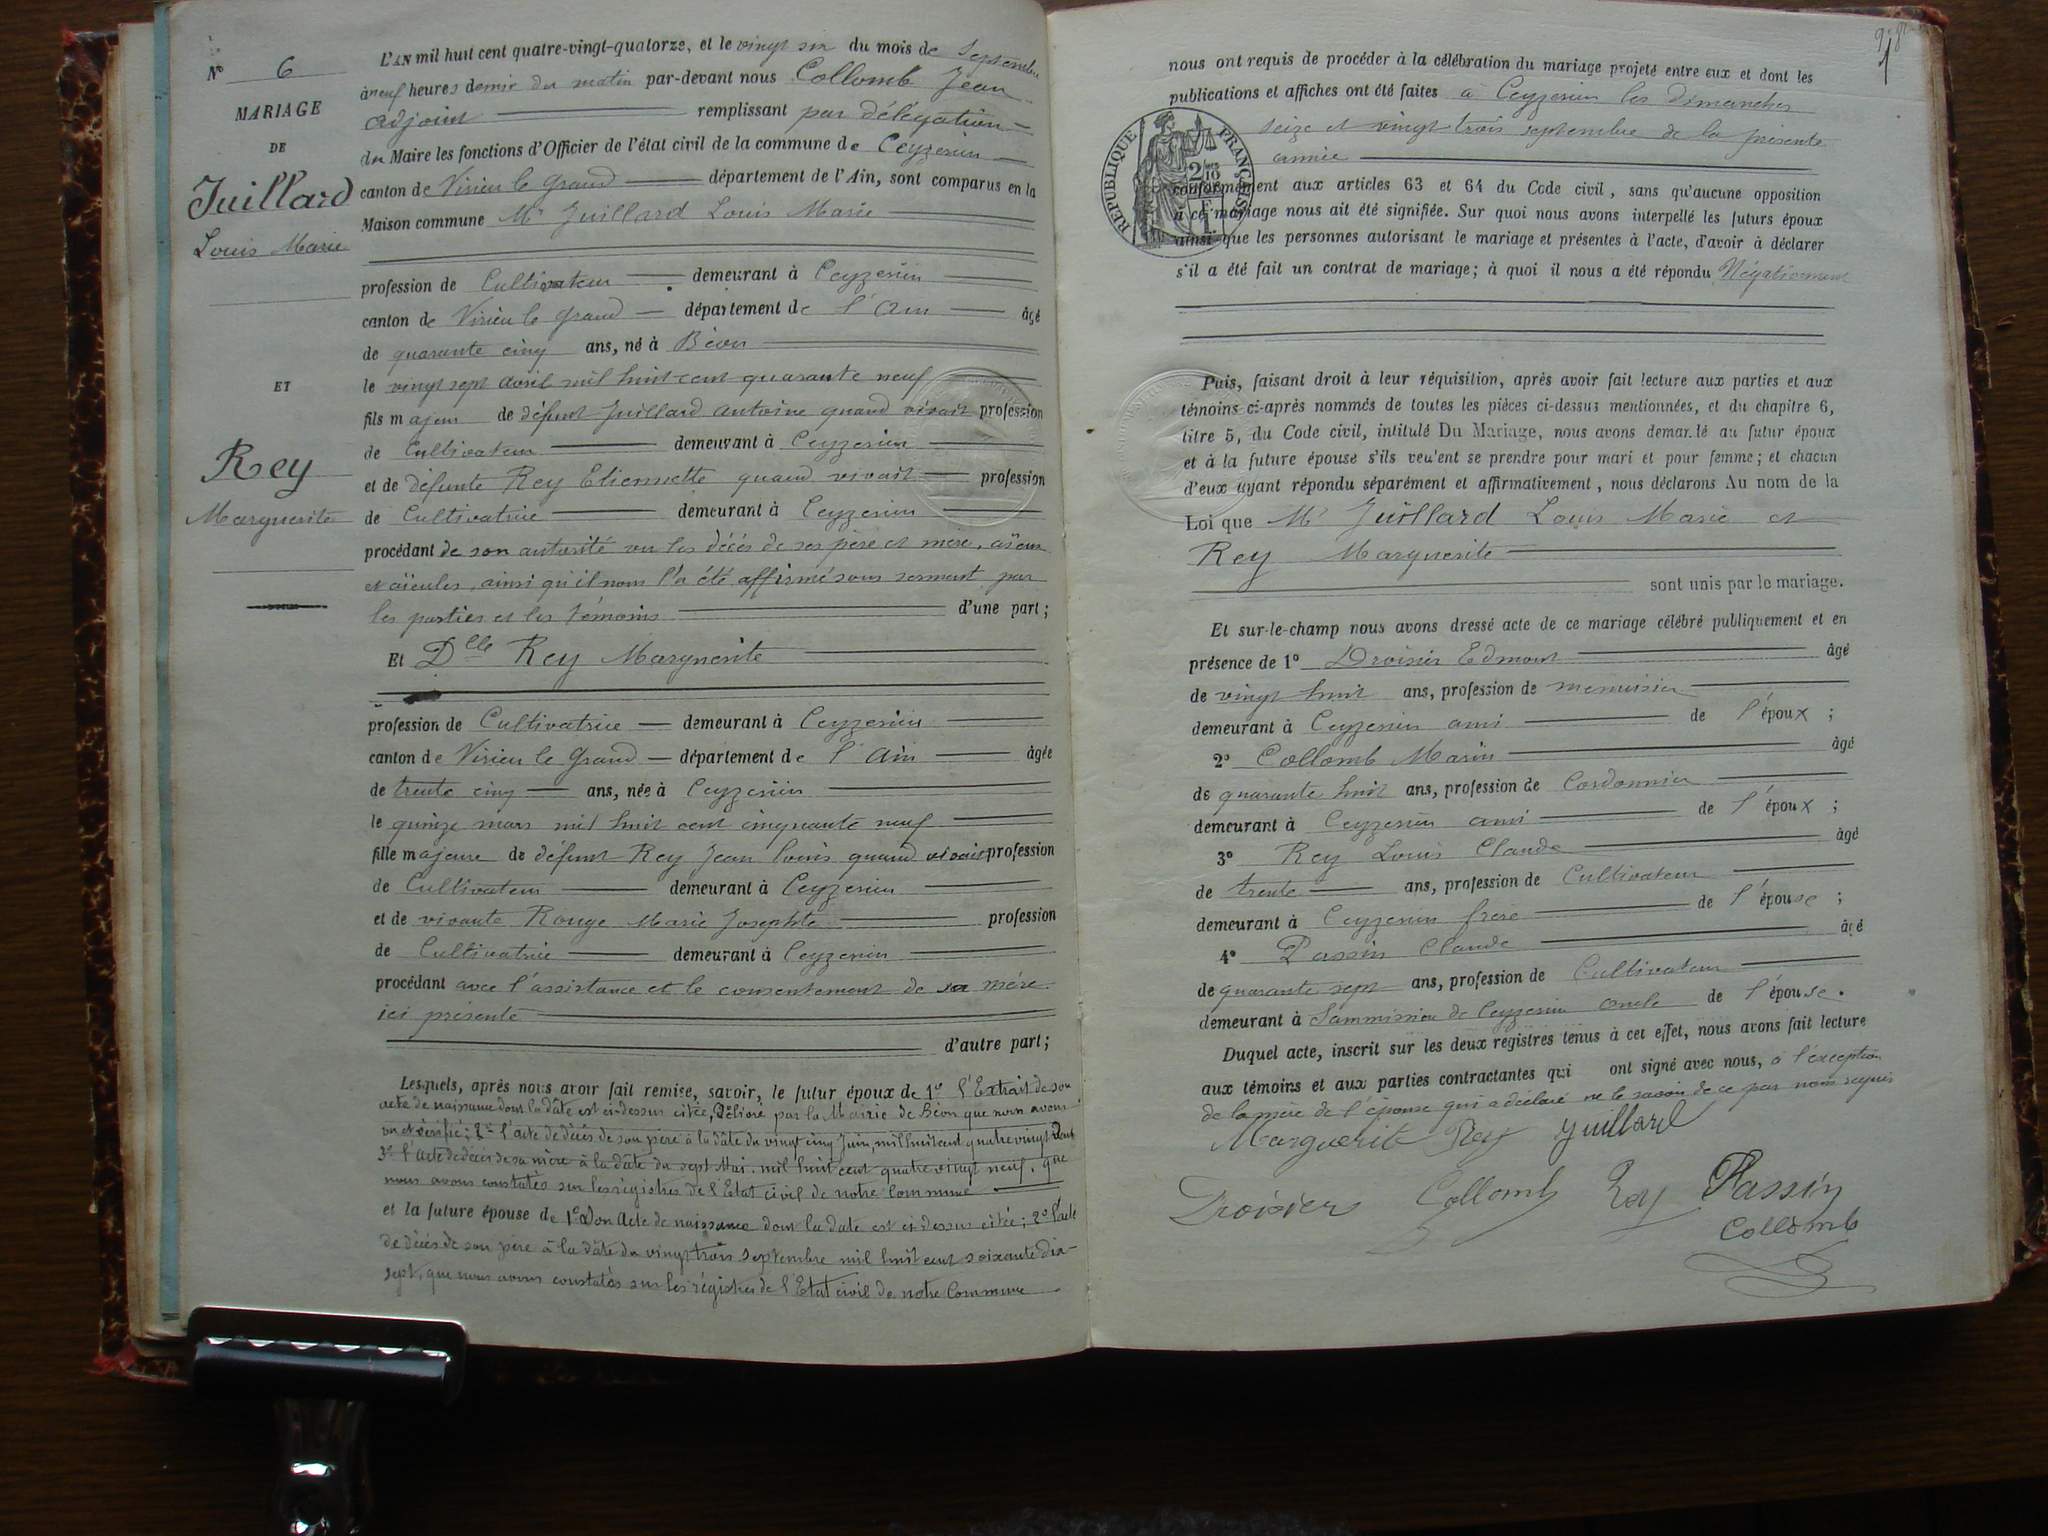 N° 6
MARIAGE
DE
Juillard
Louis Marie
ET
Rey
Marguerite
L'AN mil huit cent quatre-vingt-quatorze, et le vingt six du mois de Septembre
à neuf heures demie du matin par-devant nous Collomb Jean
adjoint remplissant par délégation
du Maire les fonctions d'Officier de l'état civil de la commune de Ceyzerieu
canton de Virieu le Grand département de l'Ain, sont comparus en la
Maison commune Mr Juillard Louis Marie
profession de Cultivateur demeurant à Ceyzerieu
canton de Virieu le Grand département de l'Ain âgé
de quarante cinq ans, né à Béon
le vingt sept avril mil huit cent quarante neuf
fils majeur de défunt Juillard Antoine quand vivait profession
de Cultivateur demeurant à Ceyzerieu
et de défunte Rey Etiennette quand vivait profession
de Cultivatrice demeurant à Ceyzerieu
procédant de son autorité vu les décés de ses père et mère, aïeux
et aïeules, ainsi qu'il nous l'a été affirmé sous serment par
les parties et les témoins d'une part;
Et Dlle Rey Marguerite
profession de Cultivatrice demeurant à Ceyzerieu
canton de Virieu le Grand département de l'Ain âgée
de trente cinq ans, née à Ceyzerieu
le quinze mars mil huit cent cinquante neuf
fille majeure de défunt Rey Jean Louis quand vivait profession
de Cultivateur demeurant à Ceyzerieu
et de vivante Rouge Marie Josephte profession
de Cultivatrice demeurant à Ceyzerieu
procédant avec l'assistance et le consentement de sa mère
ici présente
d'autre part;
Lesquels, après nous avoir fait remise, savoir, le futur époux de 1° l'Extrait de son
acte de naissance dont la date est ci-dessus citée, délivré par la Mairie de Béon que nous avons
vu et vérifié; 2° l'acte de décés de son père à la date du vingt cinq Juin, mil huit cent quatre vingt
3° l'acte de décés de sa mère à la date du sept Mai mil huit cent quatre vingt neuf, que
nous avons constatés sur les régistres de l'Etat civil de notre Commune
et la future épouse de 1° Son Acte de naissance dont la date est ci-dessus citée; 2° l'acte
de décés de son père à la date du vingt trois septembre mil huit cent soixante dix-
sept, que nous avons constatés sur les régistres de l'Etat civil de notre Commune
nous ont requis de procéder à la célébration du mariage projeté entre eux et dont les
publications et affiches ont été faites à Ceyzerieu les dimanches
seize et vingt trois septembre de la présente
année
RÉPUBLIQUE FRANÇAISE
conformément aux articles 63 et 64 du Code civil, sans qu'aucune opposition
à ce mariage nous ait été signifiée. Sur quoi nous avons interpellé les futurs époux
ainsi que les personnes autorisant le mariage et présentes à l'acte, d'avoir à déclarer
s'il a été fait un contrat de mariage; à quoi il nous a été répondu Négativement
Puis, faisant droit à leur réquisition, après avoir fait lecture aux parties et aux
témoins ci-après nommés de toutes les pièces ci-dessus mentionnées, et du chapitre 6,
titre 5, du Code civil, intitulé Du Mariage, nous avons demandé au futur époux
et à la future épouse s'ils veulent se prendre pour mari et pour femme; et chacun
d'eux ayant répondu séparément et affirmativement, nous déclarons Au nom de la
Loi que Mr Juillard Louis Marie et
Rey Marguerite
sont unis par le mariage.
Et sur-le-champ nous avons dressé acte de ce mariage célébré publiquement et en
présence de 1° Droisier Edmont âgé
de vingt huit ans, profession de menuisier
demeurant à Ceyzerieu ami de l'époux;
2° Collomb Marin âgé
de quarante huit ans, profession de Cordonnier
demeurant à Ceyzerieu ami de l'époux;
3° Rey Louis Claude âgé
de trente ans, profession de Cultivateur
demeurant à Ceyzerieu frère de l'épouse;
4° Passin Claude âgé
de quarante sept ans, profession de Cultivateur
demeurant à de Ceyzerieu oncle de l'épouse.
Duquel acte, inscrit sur les deux régistres tenus à cet effet, nous avons fait lecture
aux témoins et aux parties contractantes qui ont signé avec nous, à l'exception
de la mère de l'épouse qui a déclaré ne le savoir de ce par nous requis
Marguerite Rey Juillard
Droisier Collomb Rey Passin
Collomb